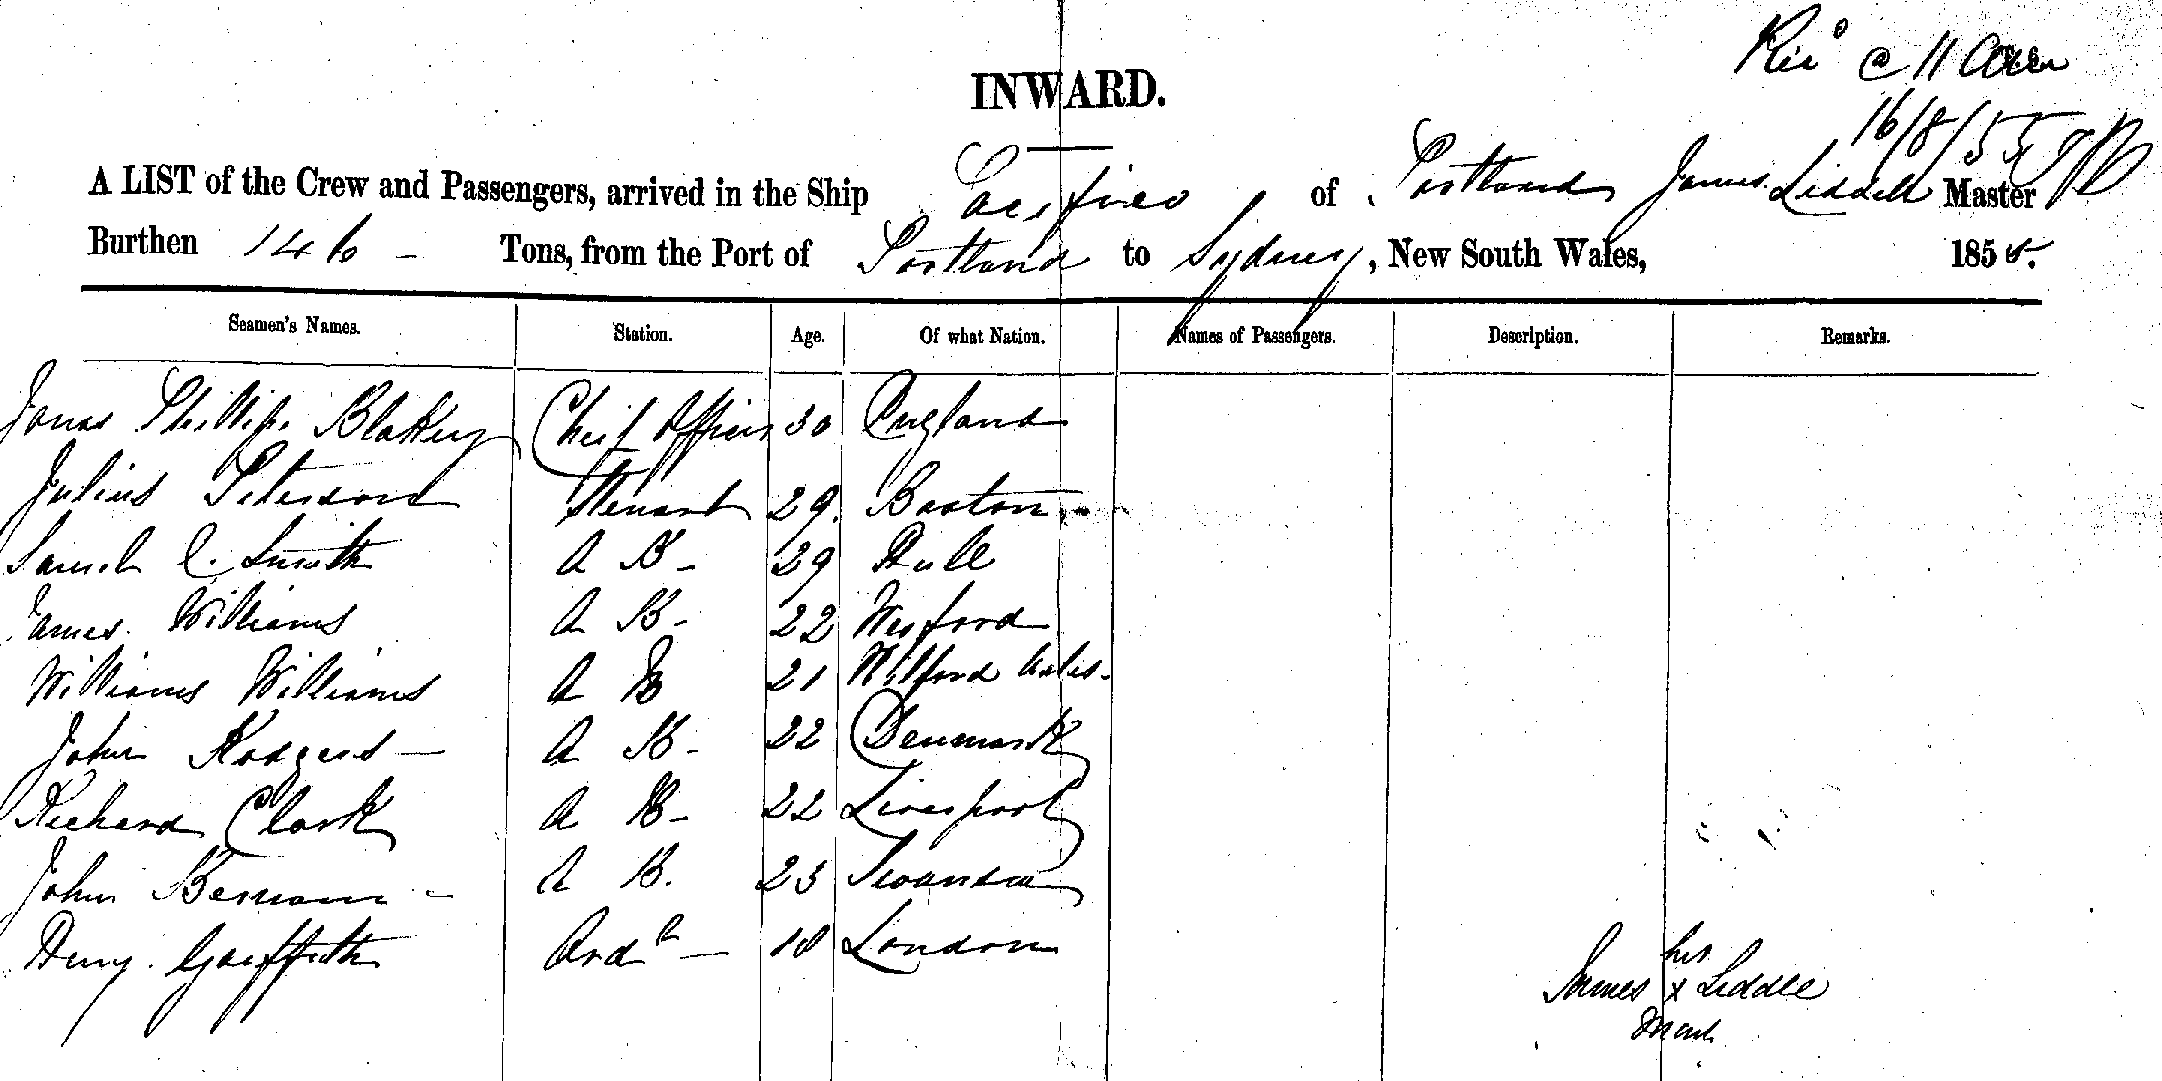 Recd @ 11 am
16/8/55
INWARD.
A LIST of the Crew and Passengers, arrived in the Ship Pacifico, of Portland James Liddell Master
Burthen 146 - Tons, from the Port of Portland to Sydney, New South Wales, 1855.
Seamen's Names. Station. Age. Of what Nation. Names of Passengers. Description. Remarks.
Jonas Phillips Blakeny Chief Officer 30 England
Julius Peterson Steward 29. Boston
Samuel C. Smith A B - 29 Hull
James Williams A B - 22 Wexford
Williams Williams A B 21 Milford Wales.
John Rodgers - A B - 22 Denmark
Richard Clark A B - 22 Liverpool
John Beesom - A B. 23 Swansea
Henry Griffith Ordy - 18 London
his
James x Liddle
Mark